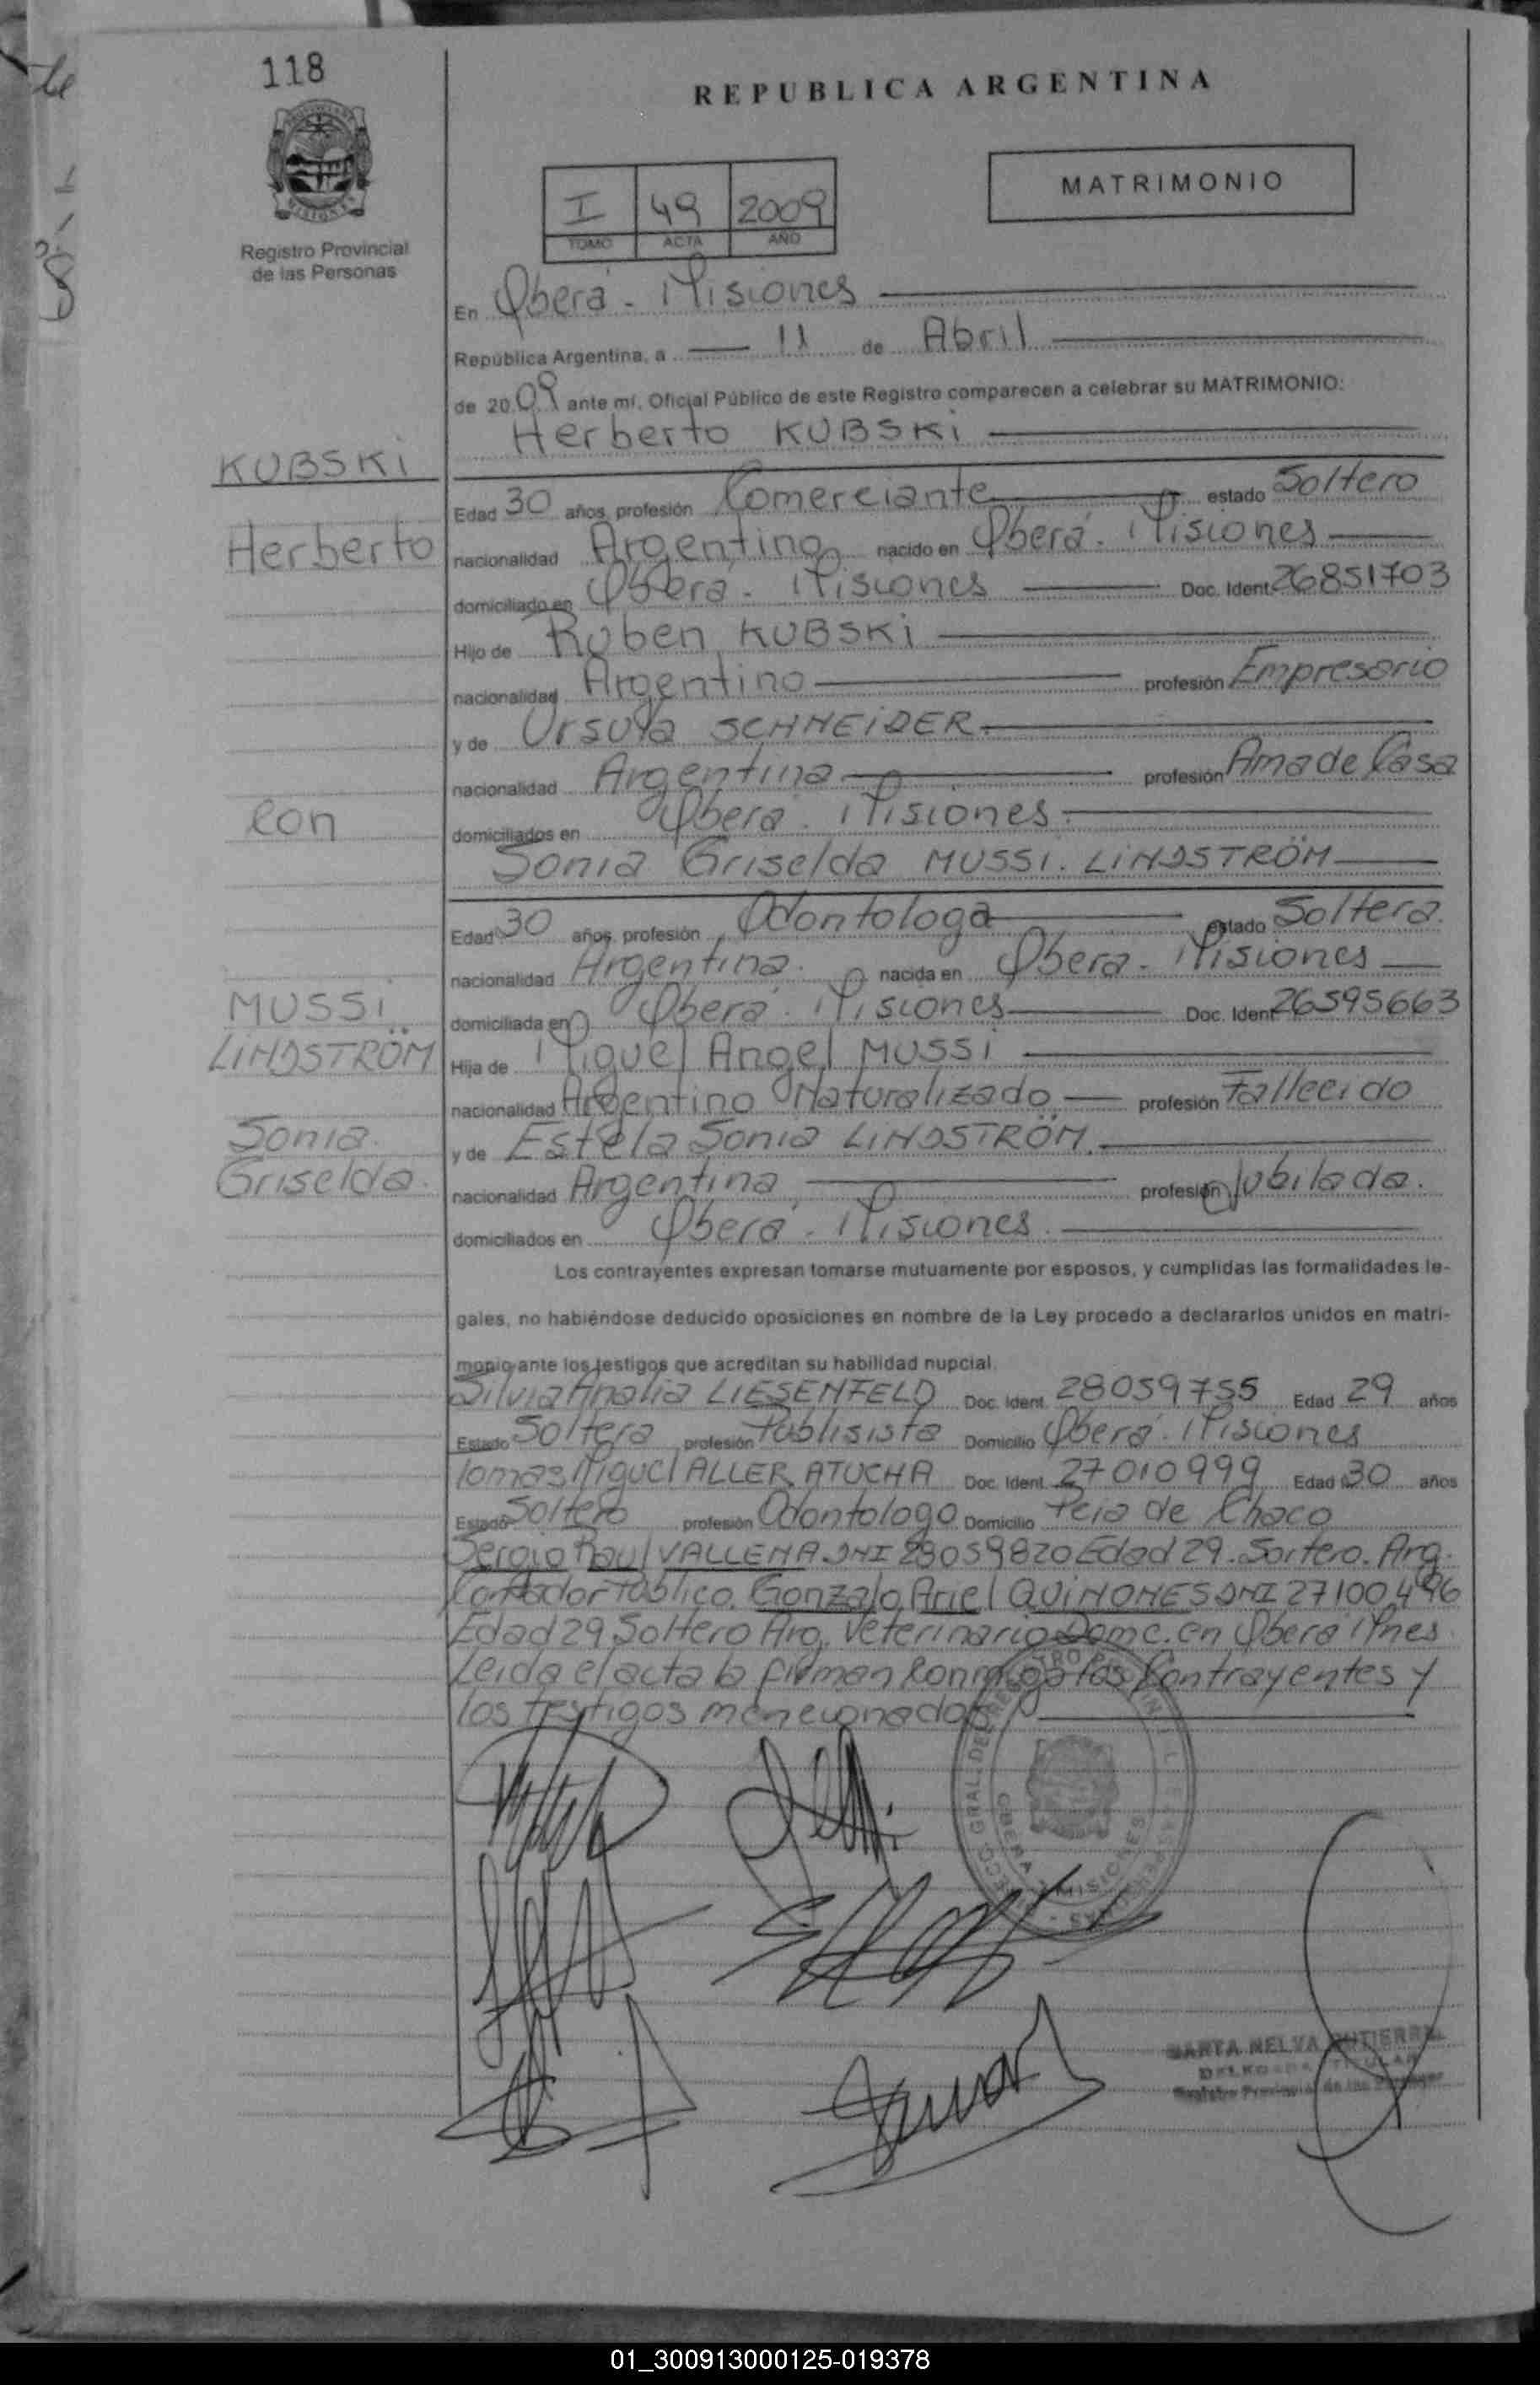 118
REPUBLICA ARGENTINA
MATRIMONIO
I 49 2009
TOMO ACTA AÑO
Registro Provincial
de las Personas
En Oberá - Misiones
República Argentina, a 11 de Abril
de 2009 ante mí, Oficial Público de este Registro comparecen a celebrar su MATRIMONIO:
Herberto KUBSKi
KUBSKi
Edad 30 años, profesión Comerciante estado Soltero
Herberto
nacionalidad Argentino nacido en Oberá - Misiones
domiciliado en Oberá - Misiones Doc. Ident. 26851703
Hijo de Ruben KUBSKi
nacionalidad Argentino profesión Empresario
y de Ursula SCHNEiDER
nacionalidad Argentina profesión Ama de Casa
Con
domiciliados en Oberá - Misiones
Sonia Griselda MUSSi. LiNDSTRÖM
Edad 30 años, profesión Odontologa estado Soltera.
nacionalidad Argentina. nacida en Oberá - Misiones
MUSSi
domiciliada en Oberá - Misiones Doc. Ident. 26595663
LiNDSTRÖM
Hija de Miguel Angel MUSSi
nacionalidad Argentino Naturalizado profesión Fallecido
Sonia.
y de Estela Sonia LiNDSTRÖM.
Griselda.
nacionalidad Argentina profesión Jubilada.
domiciliados en Oberá - Misiones.
Los contrayentes expresan tomarse mutuamente por esposos, y cumplidas las formalidades le-
gales, no habiéndose deducido oposiciones en nombre de la Ley procedo a declararlos unidos en matri-
monio ante los testigos que acreditan su habilidad nupcial.
Silvia Analia LIESENFELD Doc. Ident. 28059755 Edad 29 años
Estado Soltera profesión Publisista Domicilio Oberá - Misiones
Tomas Miguel ALLER ATUCHA Doc. Ident. 27010999 Edad 30 años
Estado Soltero profesión Odontologo Domicilio Pcia de Chaco
Sergio Raul VALLENA DNI 28059820 Edad 29. Soltero. Arg.
Contador Publico. Gonzalo Ariel QUiNONES DNI 27100496
Edad 29 Soltero Arg. Veterinario Domc. en Oberá Mnes.
Leida el acta la firman Conmigo los Contrayentes y
los testigos mencionados
MARTA NELVA GUTIERREZ
DELEGADA TITULAR
Registro Provincial de las Personas
01_300913000125-019378